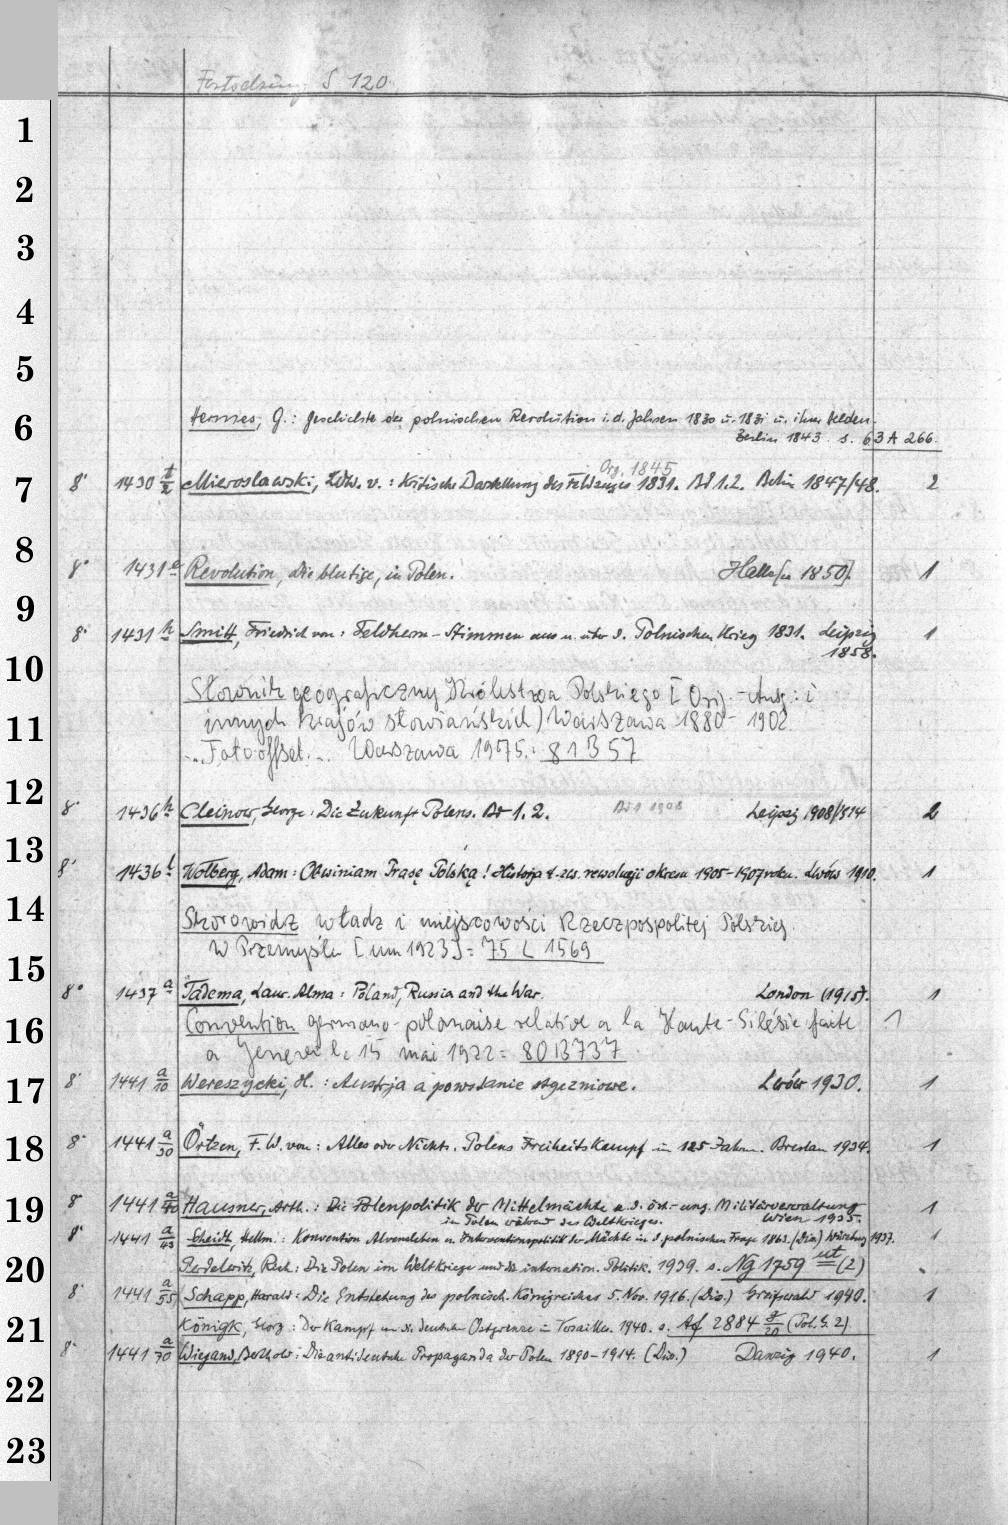 Fortsetzung S 120.
1
2
3
4
5
6
Hermes, G.: Geschichte der polnischen Revolution i. d. Jahren 1830 u. 1831 u. ihrer Helden.
Berlin 1843. s. 63 A 266.
Org. 1845
7
8° 1430 t/2 Mieroslawski, Ldw. v.: Kritische Darstellung des Feldzuges 1831. Bd 1.2. Berlin 1847/48. 2
8
8° 1431 e Revolution, die blutige, in Polen. Halle [um 1850]. 1
9
8° 1431 h Smitt, Friedrich von: Feldherrn-Stimmen aus u. über d. Polnischen Krieg 1831. Leipzig 1
1858.
10
Słownik geograficzny Królestwa Polskiego [Orig.-Ausg.: i
11
innych krajów słowiańskich) Warszawa 1880-1902.
... Fotooffset. .. Warszawa 1975. 81 B 57
12
8° 1436 h Cleinow, George: Die Zukunft Polens. Bd 1. 2. Bd 1 1908 Leipzig 1908/1914 2
13
8° 1436 l Wolberg, Adam: Obwiniam Prasę Polską! Historja t. zw. rewolucji okresu 1905-1907 roku. Lwów 1910. 1
14
Skorowidz władz i miejscowości Rzeczpospolitej Polskiej.
W Przemyślu [um 1923] = 75 L 1569
15
8° 1437 a Tadema, Laur. Alma: Poland, Russia and the War. London (1915). 1
16
Convention germano-polonaise relative a la Haute-Silésie faite 1
a Geneve le 15 mai 1922 = 80 B 737
17
8° 1441 a/10 Wereszycki, H.: Austrja a powstanie styczniowe. Lwów 1930. 1
18
8° 1441 a/30 Örtzen, F. W. von: Alles oder Nichts. Polens Freiheitskampf in 125 Jahren. Breslau 1934. 1
19
8° 1441 a/40 Hausner, Arth.: Die Polenpolitik der Mittelmächte u. d. öst.-ung. Militärverwaltung 1
in Polen während des Weltkrieges. Wien 1935.
8° 1441 a/43 Scheidt, Hellm.: Konvention Alvensleben u. Interventionspolitik der Mächte in d. polnischen Frage 1863. (Diss) Würzburg 1937. 1
20
Perdelwitz, Rich.: Die Polen im Weltkriege und die internation. Politik. 1939. s. Ng 1759 ut (2)
8° 1441 a/55 Schapp, Harald: Die Entstehung des polnisch. Königreiches 5. Nov. 1916. (Diss.) Greifswald 1940. 1
21
Königk, Georg: Der Kampf um d. deutsche Ostgrenze in Versailles. 1940. s. Af 2884 g/20 (Pol. G. 2)
8° 1441 a/70 Wiegand, Berthold: Die antideutsche Propaganda der Polen 1890-1914. (Diss.) Danzig 1940. 1
22
23